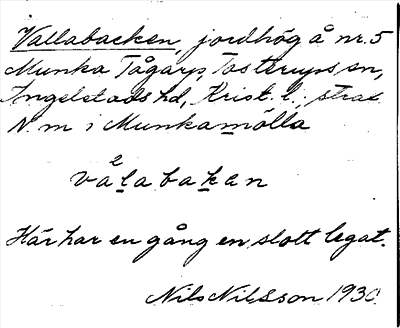 Vallabacken, jordhög å nr. 5
Munka Tågarp, Tosterups sn,
Ingelstads hd, Krist. l.; strax
N. m i Munkamölla
2
valabakan
Här har en gång en slott legat.
Nils Nilsson 1930